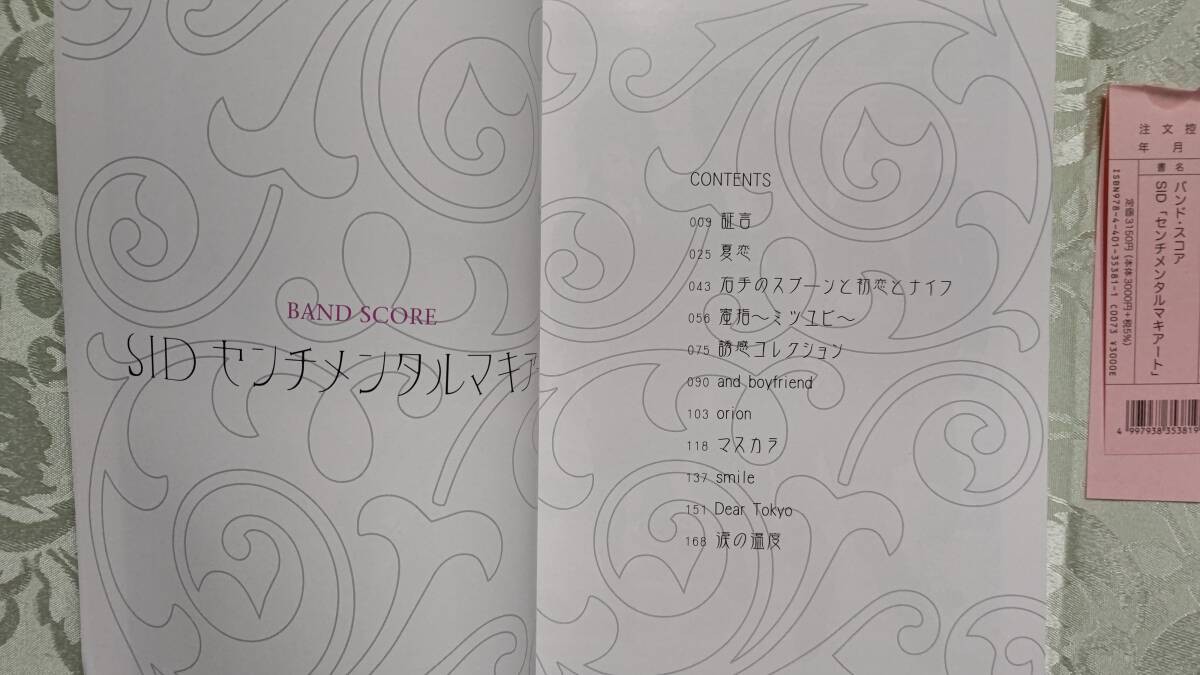 BAND SCORE
SID センチメンタルマキア
CONTENTS
009 証言
025 夏恋
043 右手のスプーンと初恋とナイフ
056 蜜指〜ミツユビ〜
075 誘惑コレクション
090 and boyfriend
103 orion
118 マスカラ
137 smile
151 Dear Tokyo
168 涙の温度
注文控
年 月
書名
バンド・スコア
SID「センチメンタルマキアート」
定価3150円(本体3000円+税5%)
ISBN978-4-401-35381-1 C0073 ¥3000E
4 997938 353819